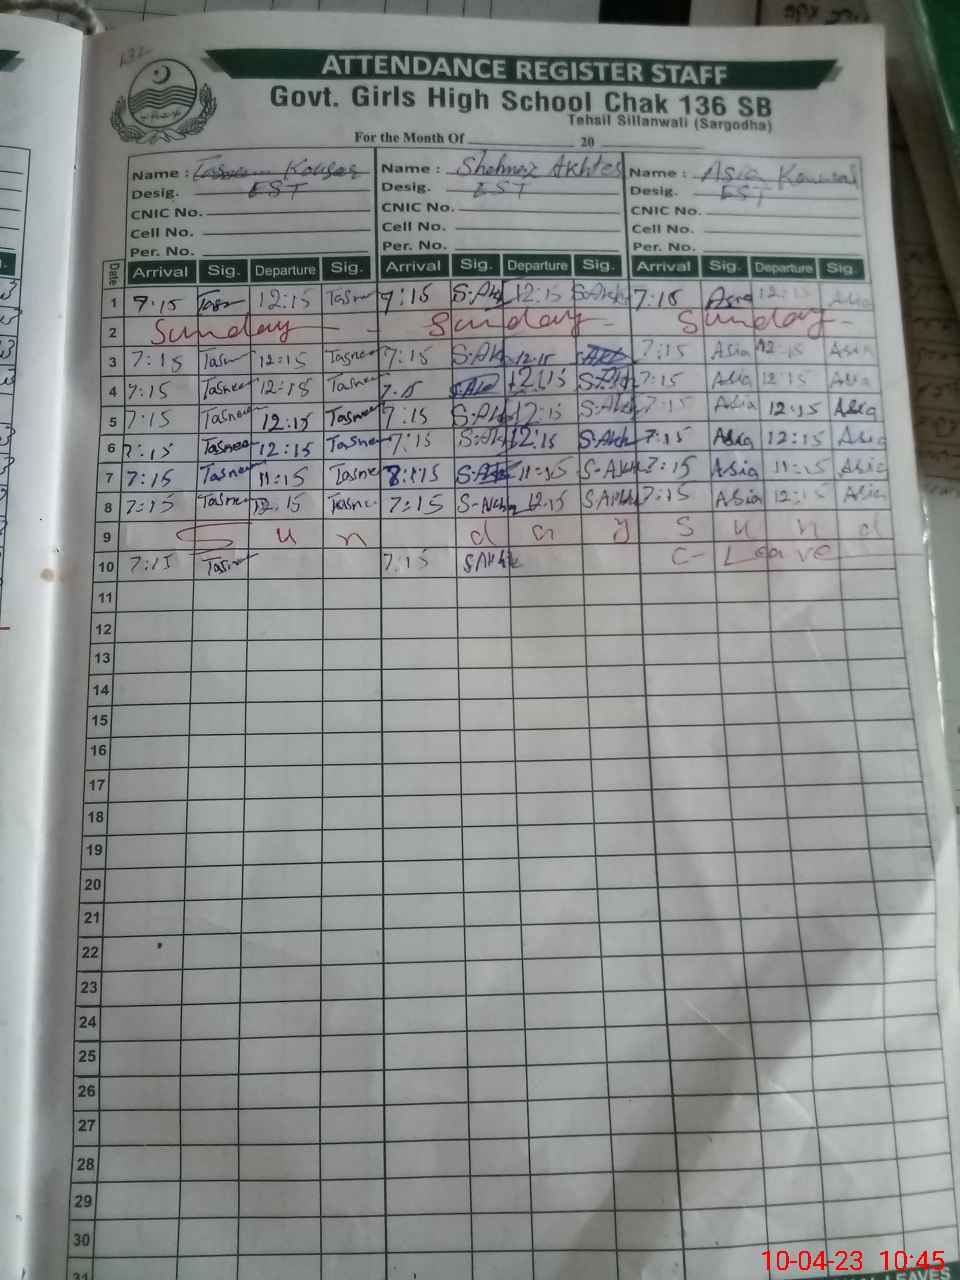 132
ATTENDANCE REGISTER STAFF
Govt. Girls High School Chak 136 SB
Tehsil Sillanwali (Sargodha)
For the Month Of 20
Name : Kousar Name : Shahnaz Akhter Name : Asia Kanwal
Desig. EST Desig. EST Desig. EST
CNIC No. CNIC No. CNIC No.
Cell No. Cell No. Cell No.
Per. No. Per. No. Per. No.
Date Arrival Sig. Departure Sig. Arrival Sig. Departure Sig. Arrival Sig. Departure Sig.
1 7:15 12:15 7:15 S.Akh 12:15 S.Akh 7:15 Asia 12:15 Asia
2 Sunday - - Sunday - Sunday -
3 7:15 Tasn 12:15 Tasnee 7:15 S.Akh 12:15 7:15 Asia 12:15 Asia
4 7:15 Tasnee 12:15 Tasnee 12:15 S.Akh 7:15 Asia 12:15 Asia
5 7:15 Tasnee 12:15 Tasnee 7:15 S.Akh 12:15 S.Akh 7:15 Asia 12:15 Asia
6 7:15 Tasnee 12:15 Tasnee 7:15 S.Akh 12:15 S.Akh 7:15 Asia 12:15 Asia
7 7:15 Tasnee 11:15 Tasnee 11:15 S-Akh 7:15 Asia 11:15 Asia
8 7:15 Tasnee 12:15 Tasnee 7:15 S-Akh 12:15 S.Akh 7:15 Asia 12:15 Asia
9 S u n d a y S u n d
10 7:15 Tasn 7:15 S.Akh C- Leave
11
12
13
14
15
16
17
18
19
20
21
22
23
24
25
26
27
28
29
30
31
10-04-23 10:45
LEAVES